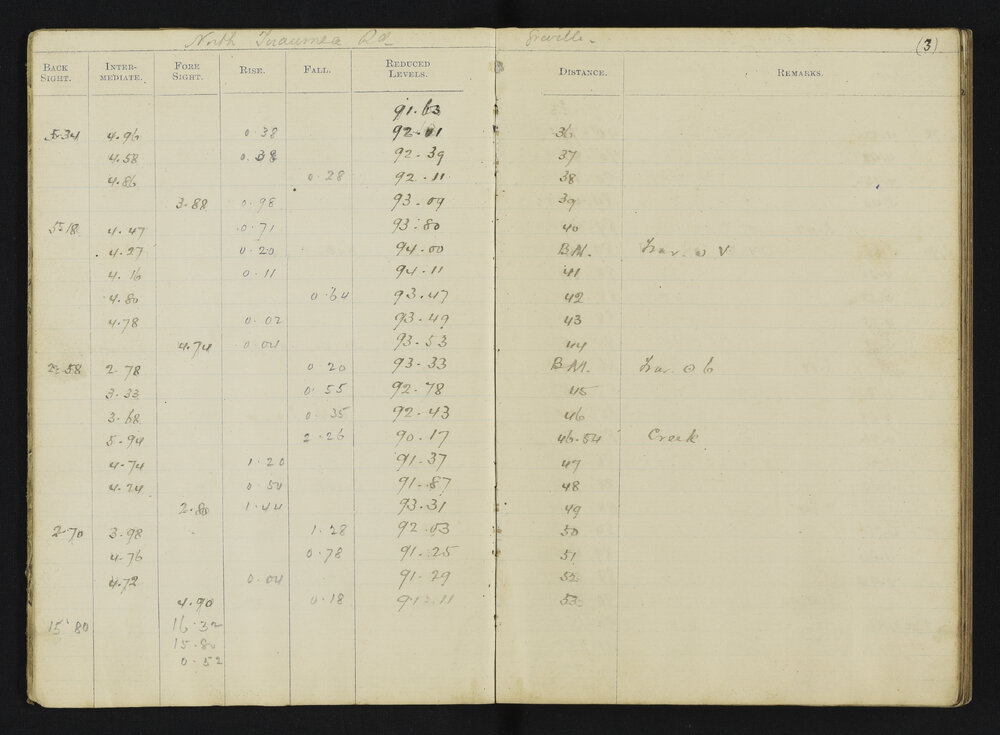 North Tiraumea Rd Greville.
(3)
BACK SIGHT. INTER-MEDIATE. FORE SIGHT. RISE. FALL. REDUCED LEVELS. DISTANCE. REMARKS.
91.63
5.34 4.96 0.38 92.01 36
4.58 0.38 92.39 37
4.86 0.28 92.11 38
3.88 0.98 93.09 39
5.18 4.47 0.71 93.80 40
4.27 0.20 94.00 B.M. Trav. ⊙ V
4.16 0.11 94.11 41
4.80 0.64 93.47 42
4.78 0.02 93.49 43
4.74 0.04 93.53 44
2.58 2.78 0.20 93.33 B.M. Trav. ⊙ 6
3.33 0.55 92.78 45
3.68 0.35 92.43 46
5.94 2.26 90.17 46.54 Creek
4.74 1.20 91.37 47
4.24 0.50 91.87 48
2.80 1.44 93.31 49
2.70 3.98 1.28 92.03 50
4.76 0.78 91.25 51
4.72 0.04 91.29 52
4.90 0.18 91.11 53
15.80 16.32
15.80
0.52